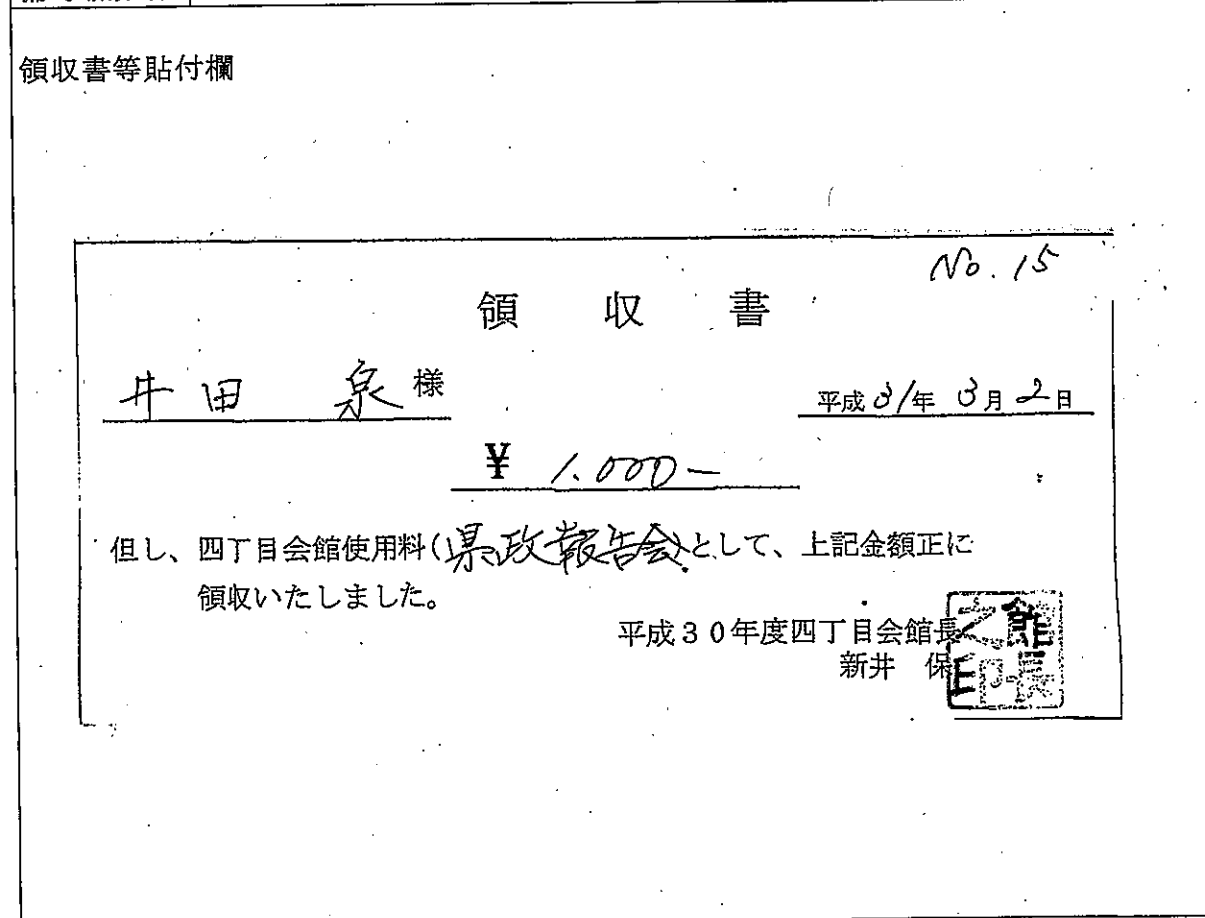 領収書等貼付欄
No. 15
領 収 書
井田 泉 様
平成31年 3月 2日
¥ 1.000-
但し、四丁目会館使用料(県政報告会)として、上記金額正に
領収いたしました。
平成30年度四丁目会館長
新井 保
館長之印